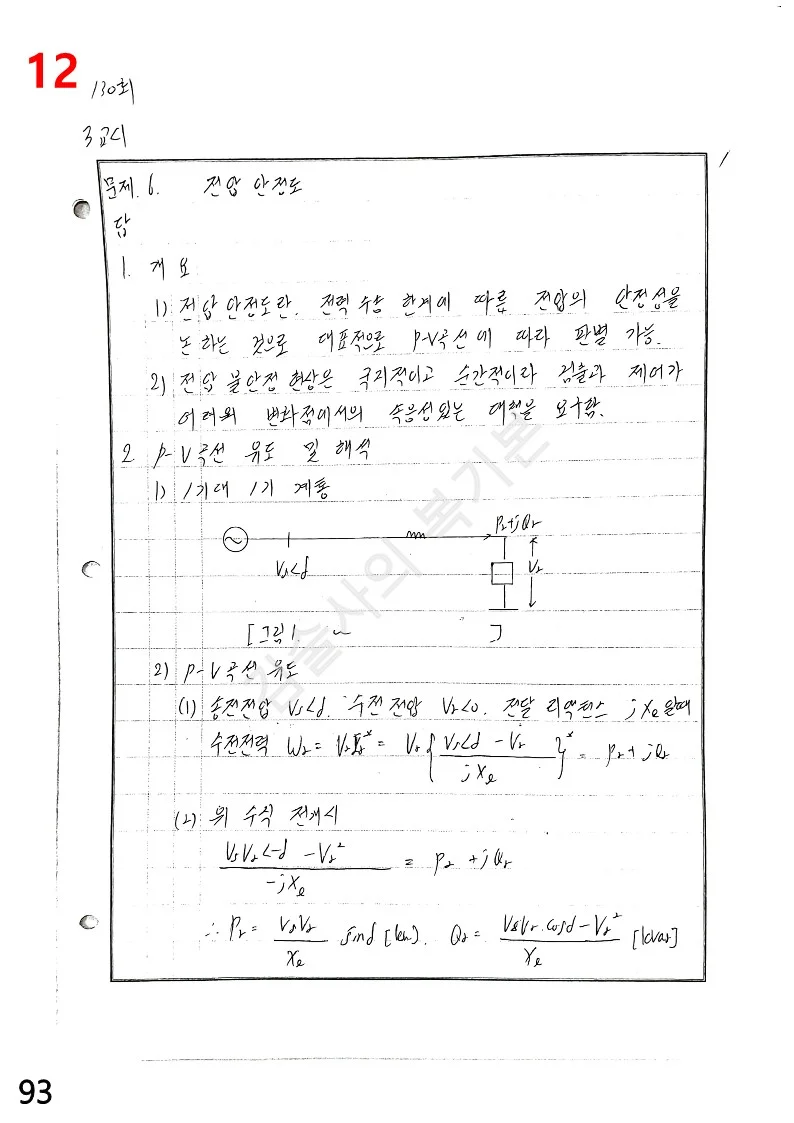 12
130회
3교시
1
문제. 6. 전압 안정도
답
1. 개요
1) 전압 안정도란. 전력 수송 한계에 따른 전압의 안정성을
논하는 것으로 대표적으로 P-V곡선에 따라 판별 가능.
2) 전압 불안정 현상은 국지적이고 순간적이라 검출과 제어가
어려워 변화점에서의 속응성있는 대책을 요구함.
2 P-V곡선 유도 및 해석
1) 1기대 1기 계통
Pr+jQr
Vs<δ
Vr
[그림 1. ~ ]
2) P-V곡선 유도
(1) 송전전압 Vs<δ. 수전 전압 Vr<0. 전달 리액턴스 jXe일때
수전전력 Wr = VrIr* = Vr { (Vs<δ - Vr) / jXe }* = Pr + jQr
(2) 위 수식 전개시
(VsVr<-δ - Vr²) / -jXe = Pr + jQr
∴ Pr = VsVr / Xe sinδ [kw]. Qr = (VsVr.cosδ - Vr²) / Xe [kvar]
기술사의 복기본
93